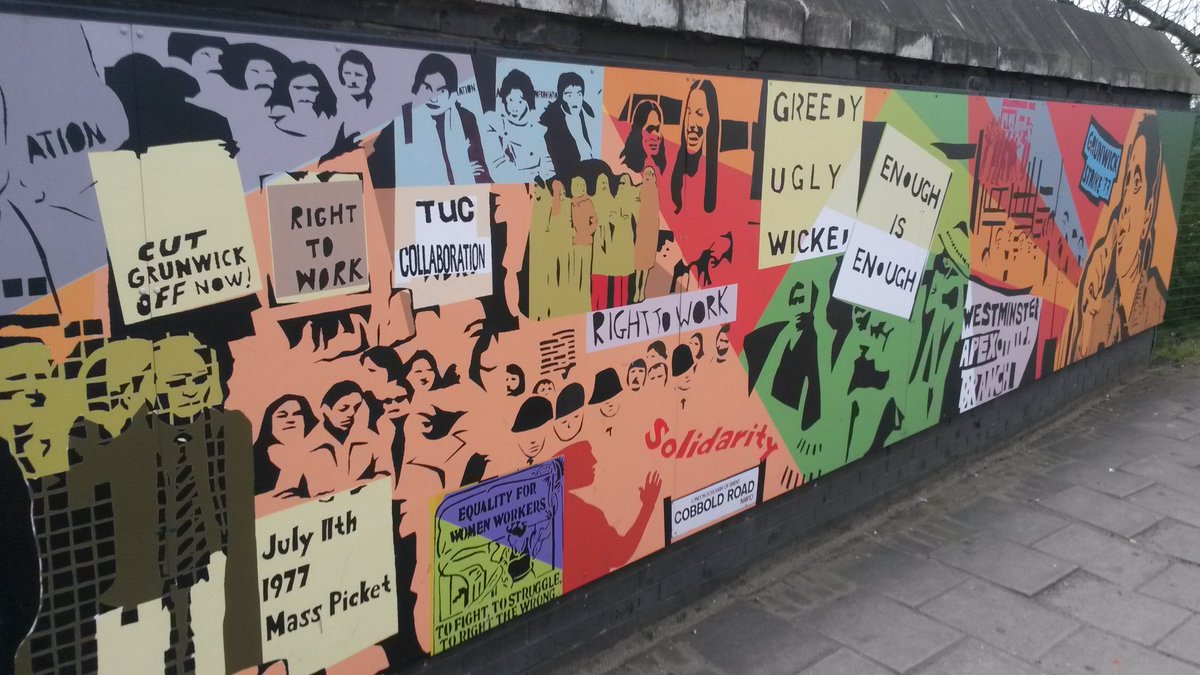 ATION
CUT
GRUNWICK
OFF NOW!
RIGHT
TO
WORK
TUC
COLLABORATION
ATION
RIGHT TO WORK
GREEDY
UGLY
WICKED
ENOUGH
IS
ENOUGH
GRUNWICK
STRIKE '77
WESTMINSTER
APEX
BRANCH
Solidarity
LONDON BOROUGH OF BRENT
COBBOLD ROAD
NW10
EQUALITY FOR
WOMEN WORKERS
TO FIGHT, TO STRUGGLE,
TO RIGHT THE WRONG.
July 11th
1977
Mass Picket